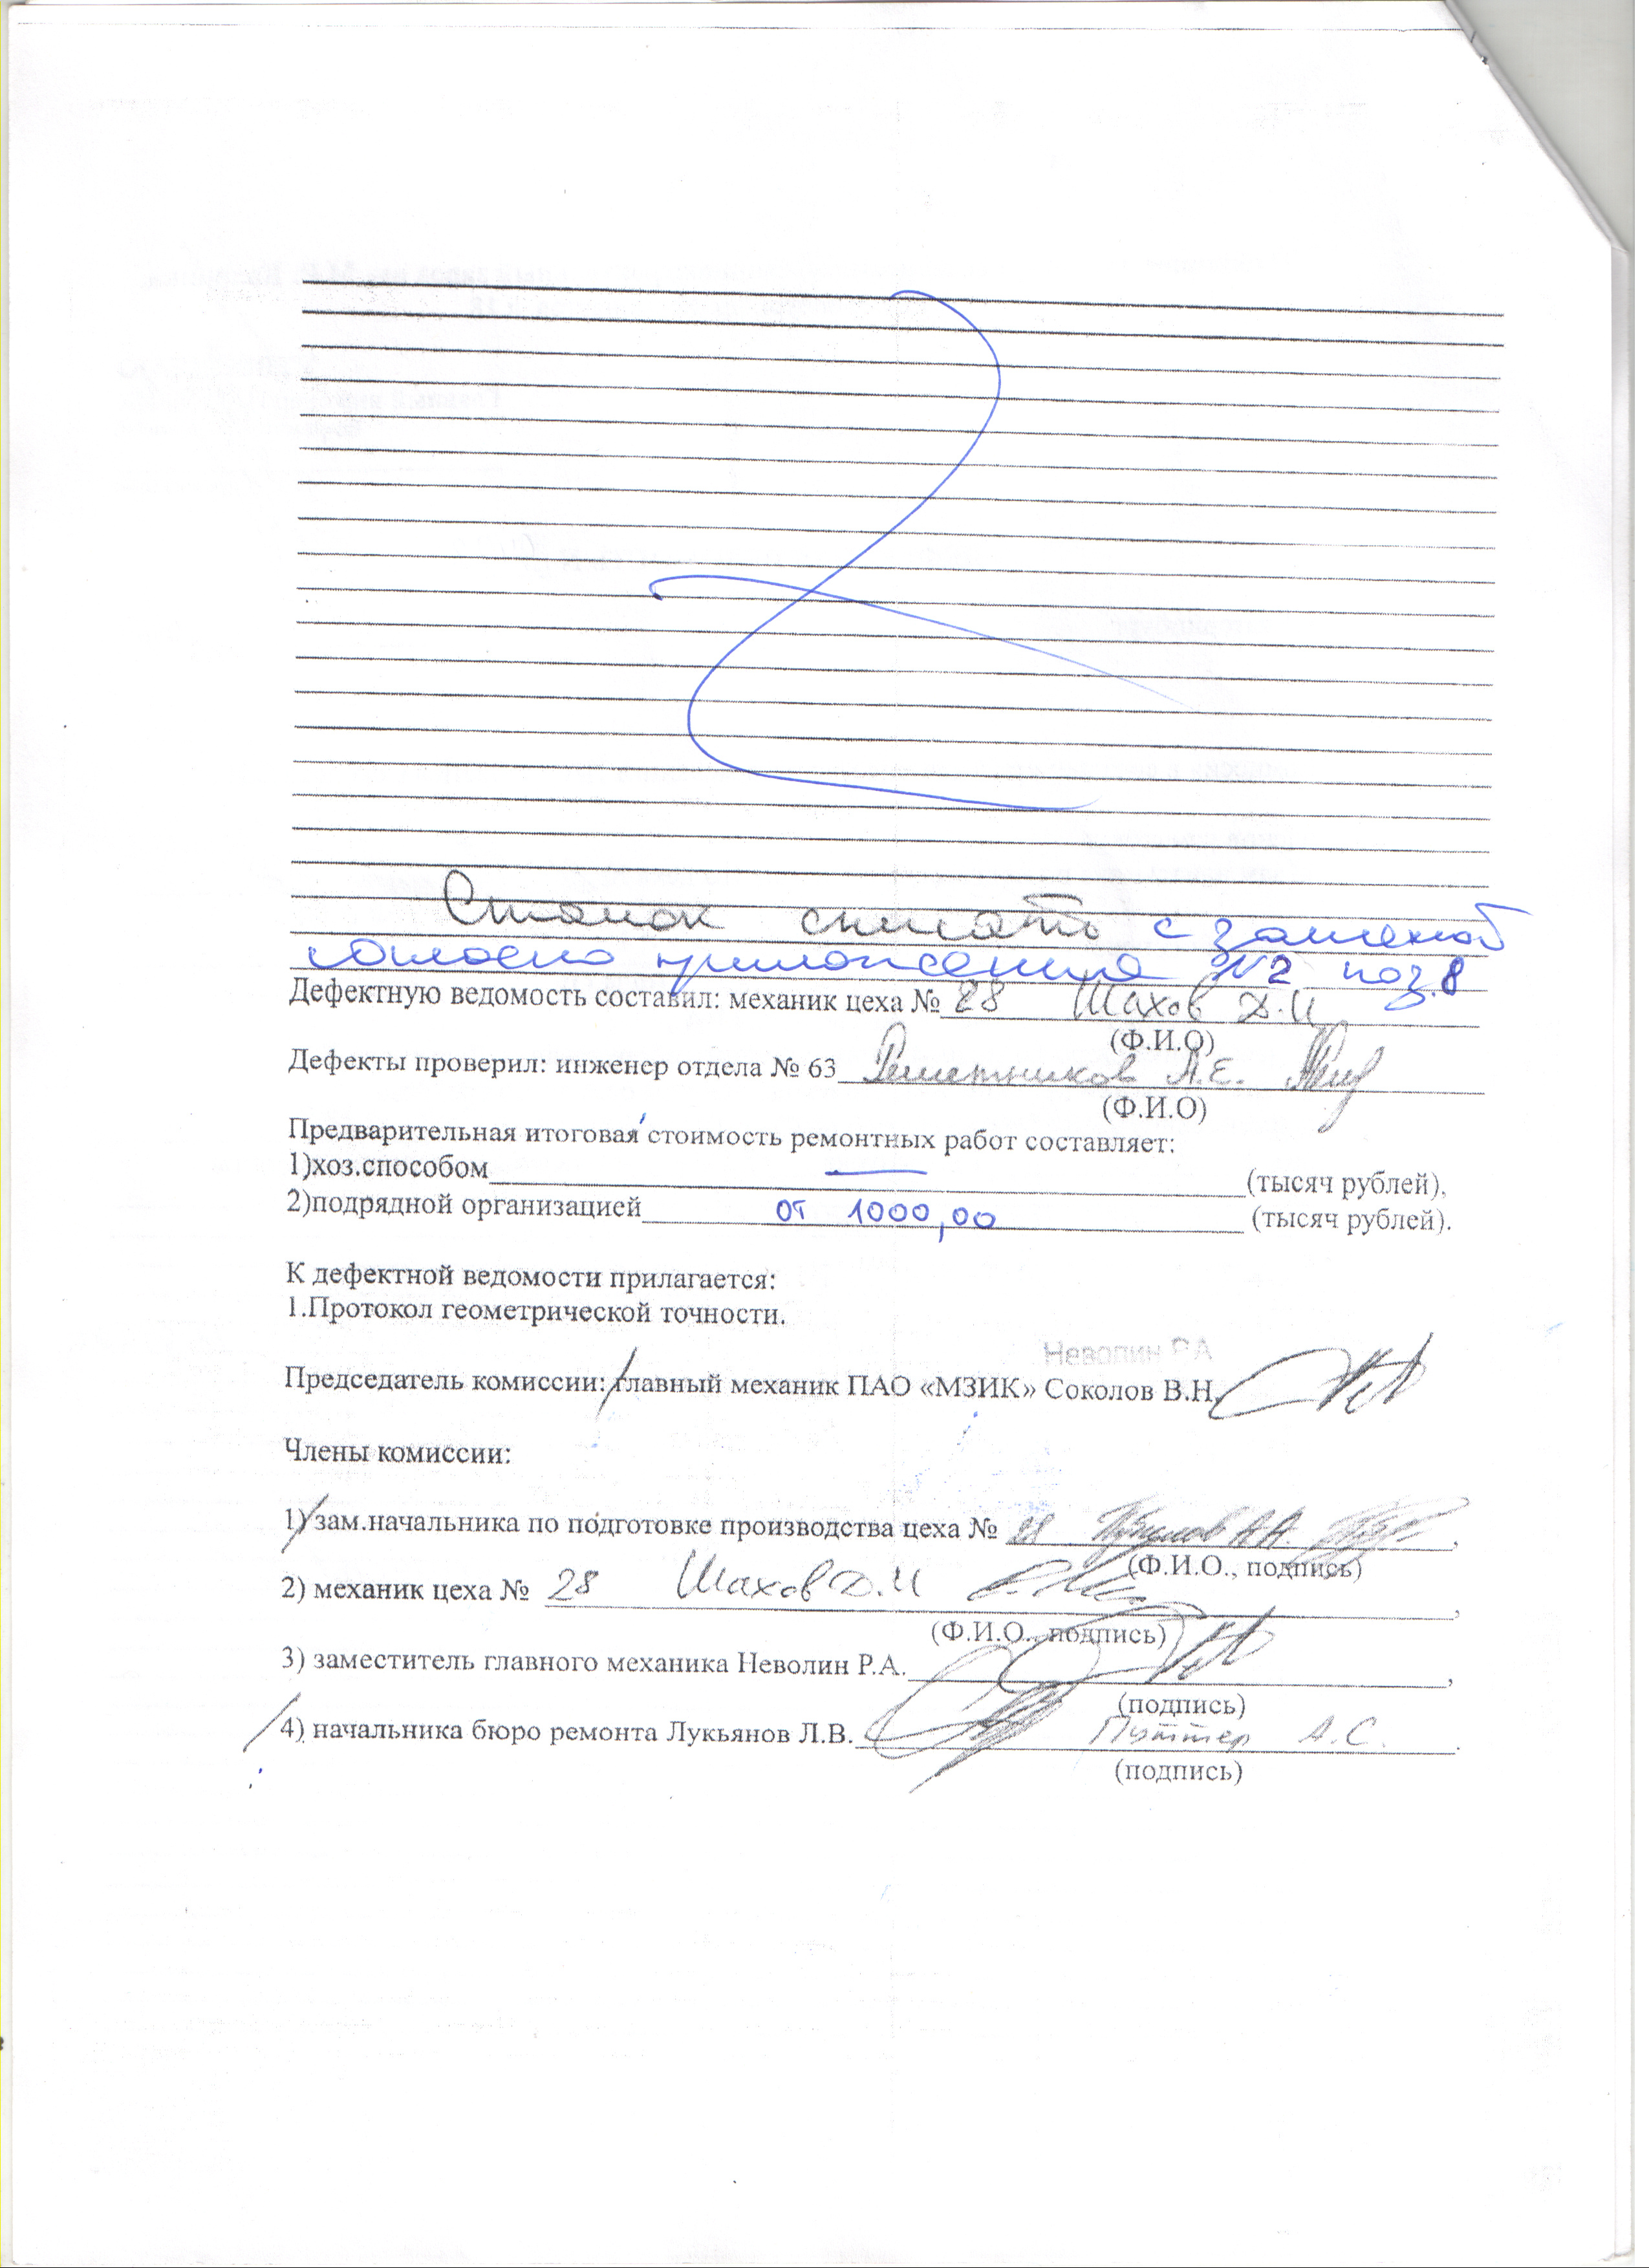 Станок списать с заменой
согласно приложения №2 поз.8
Дефектную ведомость составил: механик цеха № 28 Шахов Д.И
(Ф.И.О)
Дефекты проверил: инженер отдела № 63 Решетников А.Е.
(Ф.И.О)
Предварительная итоговая стоимость ремонтных работ составляет:
1)хоз.способом — (тысяч рублей),
2)подрядной организацией от 1000,00 (тысяч рублей).
К дефектной ведомости прилагается:
1.Протокол геометрической точности.
Неволин Р.А
Председатель комиссии: главный механик ПАО «МЗИК» Соколов В.Н.
Члены комиссии:
1) зам.начальника по подготовке производства цеха № 28 А.А. ,
(Ф.И.О., подпись)
2) механик цеха № 28 Шахов Д.И ,
(Ф.И.О., подпись)
3) заместитель главного механика Неволин Р.А. ,
(подпись)
4) начальника бюро ремонта Лукьянов Л.В. Путтер А.С.
(подпись)